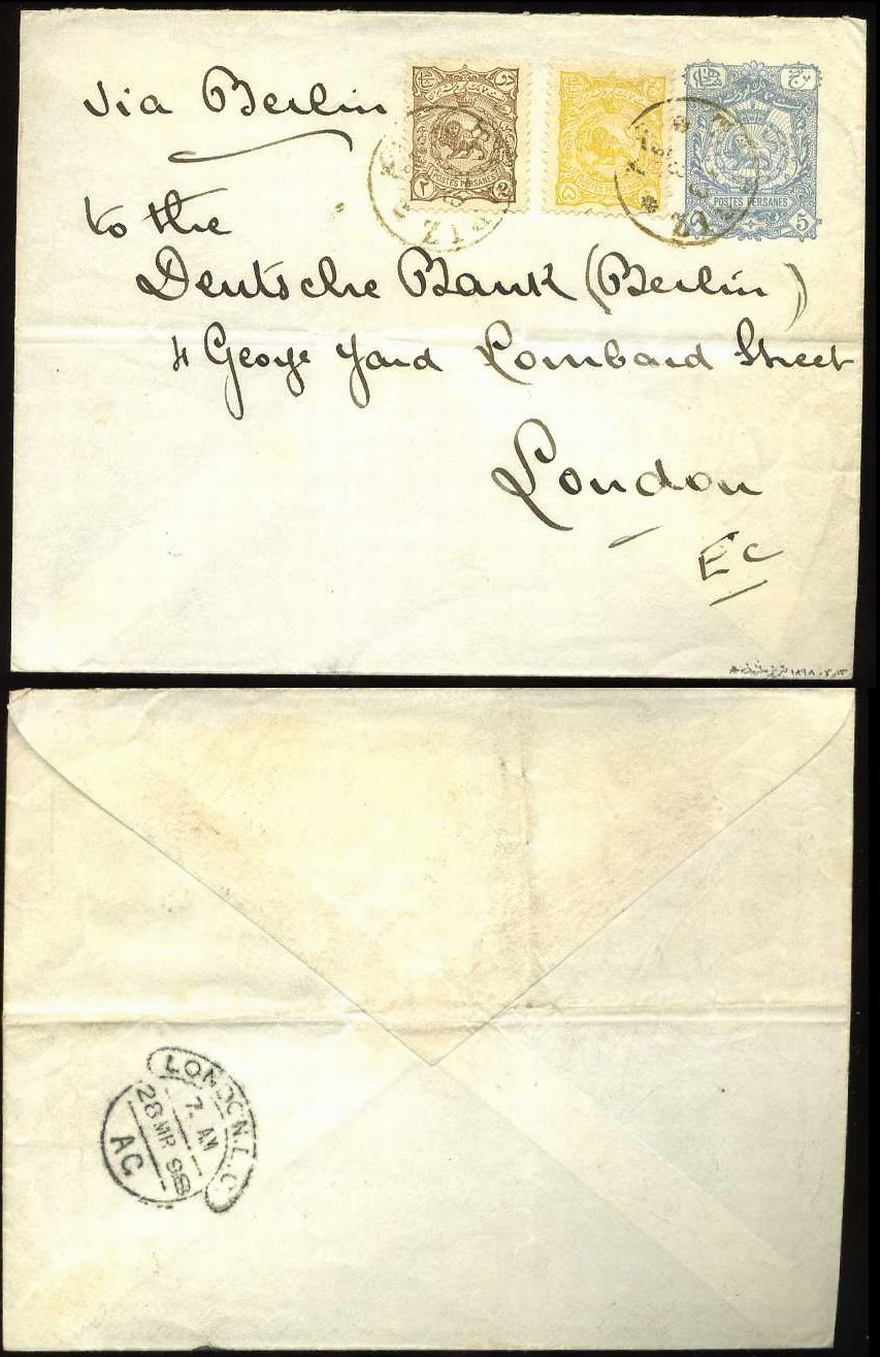 via Berlin
POSTES PERSANES
2
POSTES PERSANES
POSTES PERSANES
5
to the
Deutsche Bank (Berlin)
4 George Yard Lombard Street
London
EC
LONDON. L. C
7. AM
28 MR 98
AC